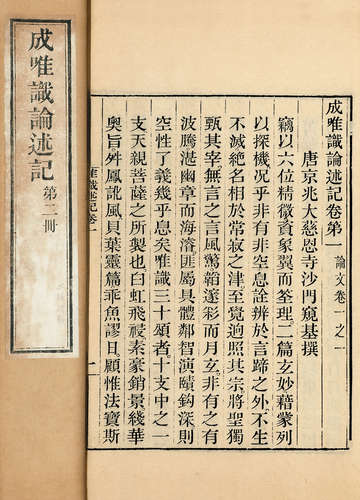 成唯識論述記 第二冊
成唯識論述記卷第一 論文卷一之一
唐京兆大慈恩寺沙門窺基撰
竊以六位精微資象翼而筌理二篇玄妙藉蒙列
以探機況乎非有非空息詮辨於言蹄之外不生
不滅絶名相於常寂之津至覺迥照其宗將聖獨
甄其宰無言之言風驚韜邃彩而月玄非有之有
波騰湛幽章而海濬匪屬具體鄰智演賾鈎深則
空性了義幾乎息矣唯識三十頌者十支中之一
支天親菩薩之所製也白虹飛祲素豪銷景綫華
奥旨舛鳳訛風貝葉靈篇乖魚謬日顧惟法寶斯
唯識述記卷一
一